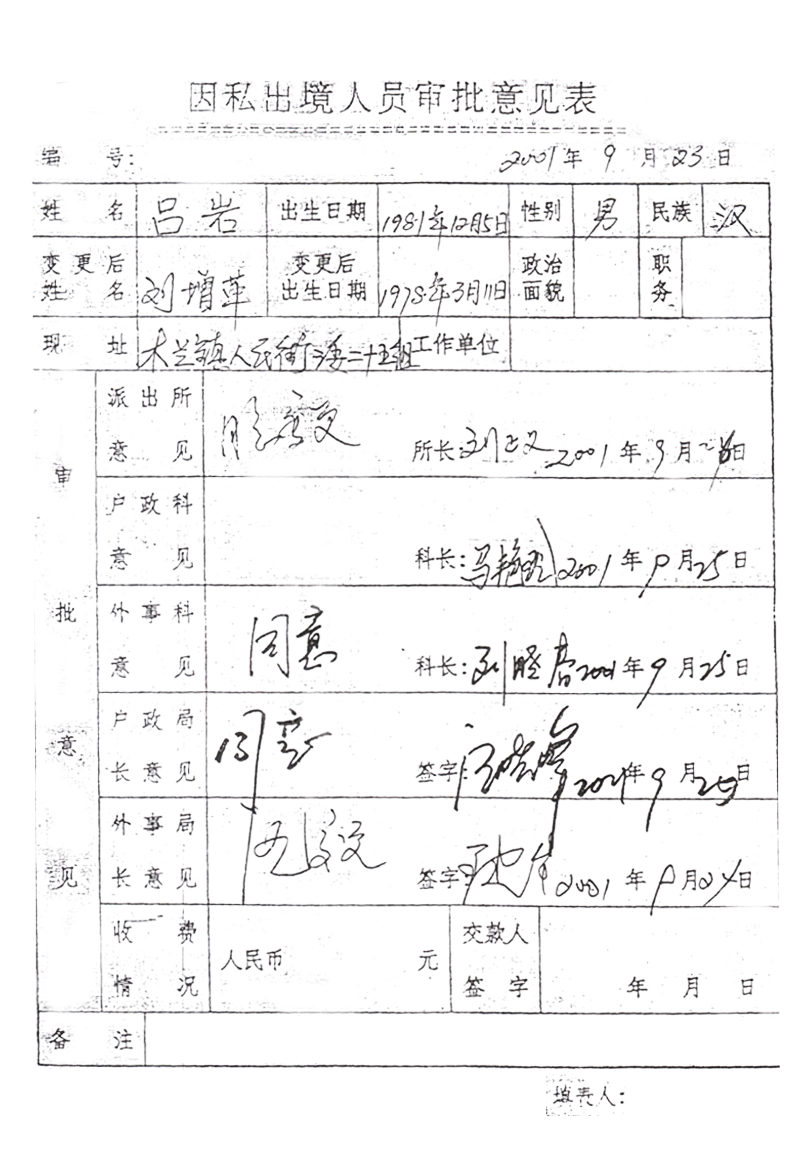 因私出境人员审批意见表
编 号： 2001年 9 月 23 日
姓 名 吕岩 出生日期 1981年12月5日 性别 男 民族 汉
变更后姓 名 刘增萍 变更后出生日期 1978年3月11日 政治面貌 职务
现 址 木兰镇人民街 委二十五组 工作单位
审批意见
派出所意 见 所长： 2001 年 9 月 日
户政科意 见 科长： 2001 年 9 月 25 日
外事科意 见 同意 科长： 2001 年 9 月 25 日
户政局长意见 同意 签字： 2001 年 9 月 25 日
外事局长意见 签字： 2001 年 9 月 日
收 费情 况 人民币 元 交款人签 字 年 月 日
备 注
填表人：